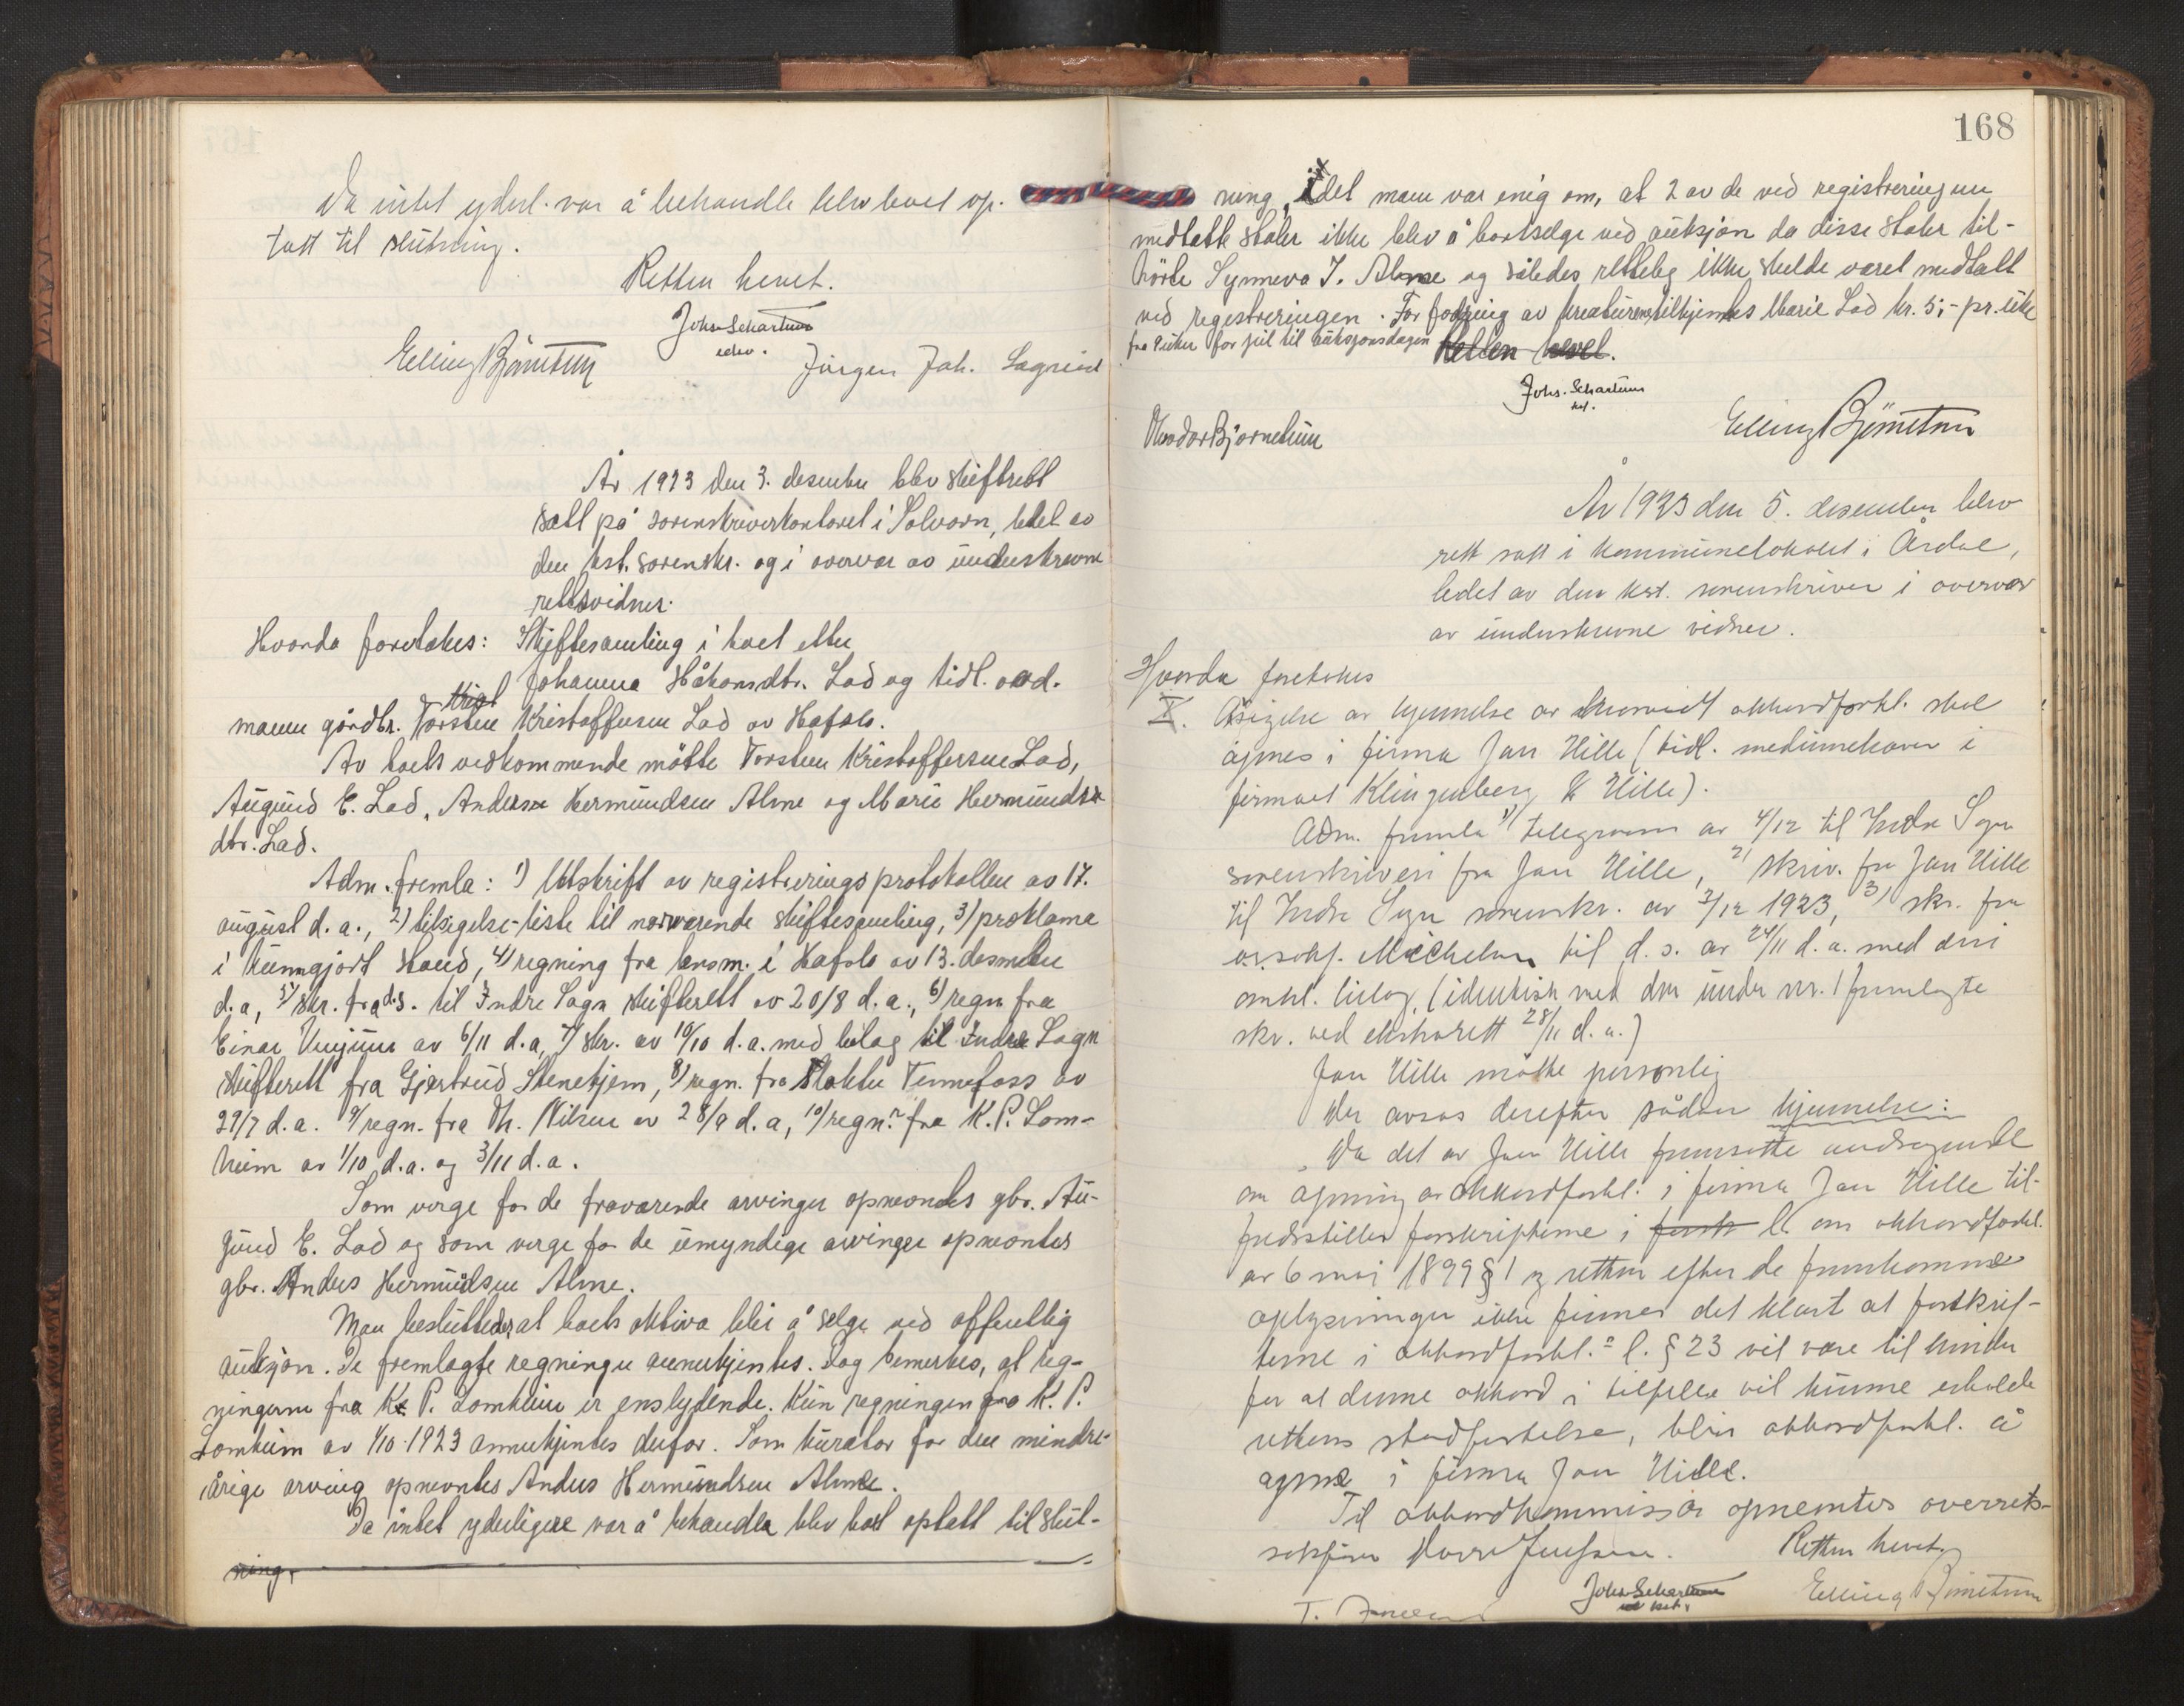 Da intet yderl. var å behandle blev boet op.
tatt til slutning.
Retten hevet.
Johs. Schartum
Elling Bjørnetun
Jørgen Joh.
År 1923 den 3. desember blev skifterett
satt på sorenskriverkontoret i Solvorn, ledet av
den kst. sorenskr. og i overvær av underskrevne
rettsvidner.
Hvorda foretokes: Skiftesamling i boet etter
Johanna Håkonsdtr. Lad og tidl. avd.
mann gårdbr. Torsten Kristoffersen Lad av Hafslo.
Av boets vedkommende møtte Torsten Kristoffersen Lad,
Augund E. Lad, Anders Hermundsen Alme og Marie Hermunds-
dtr. Lad.
Adm. fremla: 1) Utskrift av registreringsprotokollen av 17.
august d. a., 2) tilsigelse-liste til nærværende skiftesamling, 3) proklama
i Kunngjort Haud, 4) regning fra lensm. i Hafslo av 13. desember
d. a, 5) skr. fra d.s. til Indre Sogn skifterett av 20/8 d. a., 6) regn fra
Einar av 6/11 d.a, 7) skr. av 10/10 d. a. med bilag til Indre Sogn
skifterett fra Gjertrud Stenehjem, 8) regn. fra Tennefoss av
27/7 d. a. 9) regn. fra Th. Nilsen av 28/9 d. a, 10) regn. fra K. P. Lom-
heim av 1/10 d. a. og 3/11 d. a.
Som verge for de fraværende arvinger opnevntes gbr. Au-
gund E. Lad og som verge for de umyndige arvinger opnevntes
gbr. Anders Hermundsen Alme.
Man besluttedes at boets aktiva blir å selge ved offentlig
auksjon. De fremlagte regninger annerkjentes. Dog bemerkes, at reg-
ningerne fra K. P. Lomheim er enslydende. Kun regningen fra K. P.
Lomheim av 1/10-1923 annerkjentes derfor. Som kurator for den mindre-
årige arving opnevntes Anders Hermundsen Alme.
Da intet yderligere var å behandle blev boet optatt til slut-
ning.
168
ning, idet man var enig om, at 2 av de ved registreringen
medtatte staler ikke blev å bortselge ved auksjon da disse staler til-
hørte Synneva J. Alme og således rettelig ikke skulde været medtatt
ved registreringen. For fodring av kreaturene tilkjentes Marie Lad kr. 5,- pr. uke
fra 2 uker før jul til auksjonsdagen Retten hevet.
Johs. Schartum
Elling Bjørnetun
Theodor Bjørnetun
År 1923 den 5. desember blev
rett satt i kommunelokalet i Årdal,
ledet av den kst. sorenskriver i overvær
av underskrevne vidner.
Hvorda foretokes
I. Avsigelse av kjennelse av hvorvidt akkordforhl. skal
åpnes i firma Jan Hille (tidl. medinnehaver i
firmaet Klingenberg & Hille).
Adm. fremla 1) telegram av 4/12 til Indre Sogn
sorenskriveri fra Jan Hille, 2) skriv. fra Jan Hille
til Indre Sogn sorenskr. av 3/12 1923, 3) skr. fra
o.r.sakf. Michelsen til d. s. av 24/11 d. a. med deri
omhl. bilag, (identisk med den under nr. 1 fremlagte
skr. ved ekstrarett 28/11 d. a.)
Jan Hille møtte personlig
Der avsas derefter sådan kjennelse:
Da det av Jan Hille fremsatte andragende
om åpning av akkordforhl. i firma Jan Hille til-
fredsstiller forskrifterne i forsk l. om akkordforhl.
av 6 mai 1899 § 1 og retten efter de fremkomne
oplysninger ikke finner det klart at forskrif-
terne i akkordforhl. l. § 23 vil være til hinder
for at denne akkord i tilfelle vil kunne erholde
rettens stadfestelse, blir akkordforhl. å
åpne i firma Jan Hille.
Til akkordkommissær opnemtes overrets-
sakfører
Retten hevet.
Johs. Schartum
kst.
Elling Bjørnetun